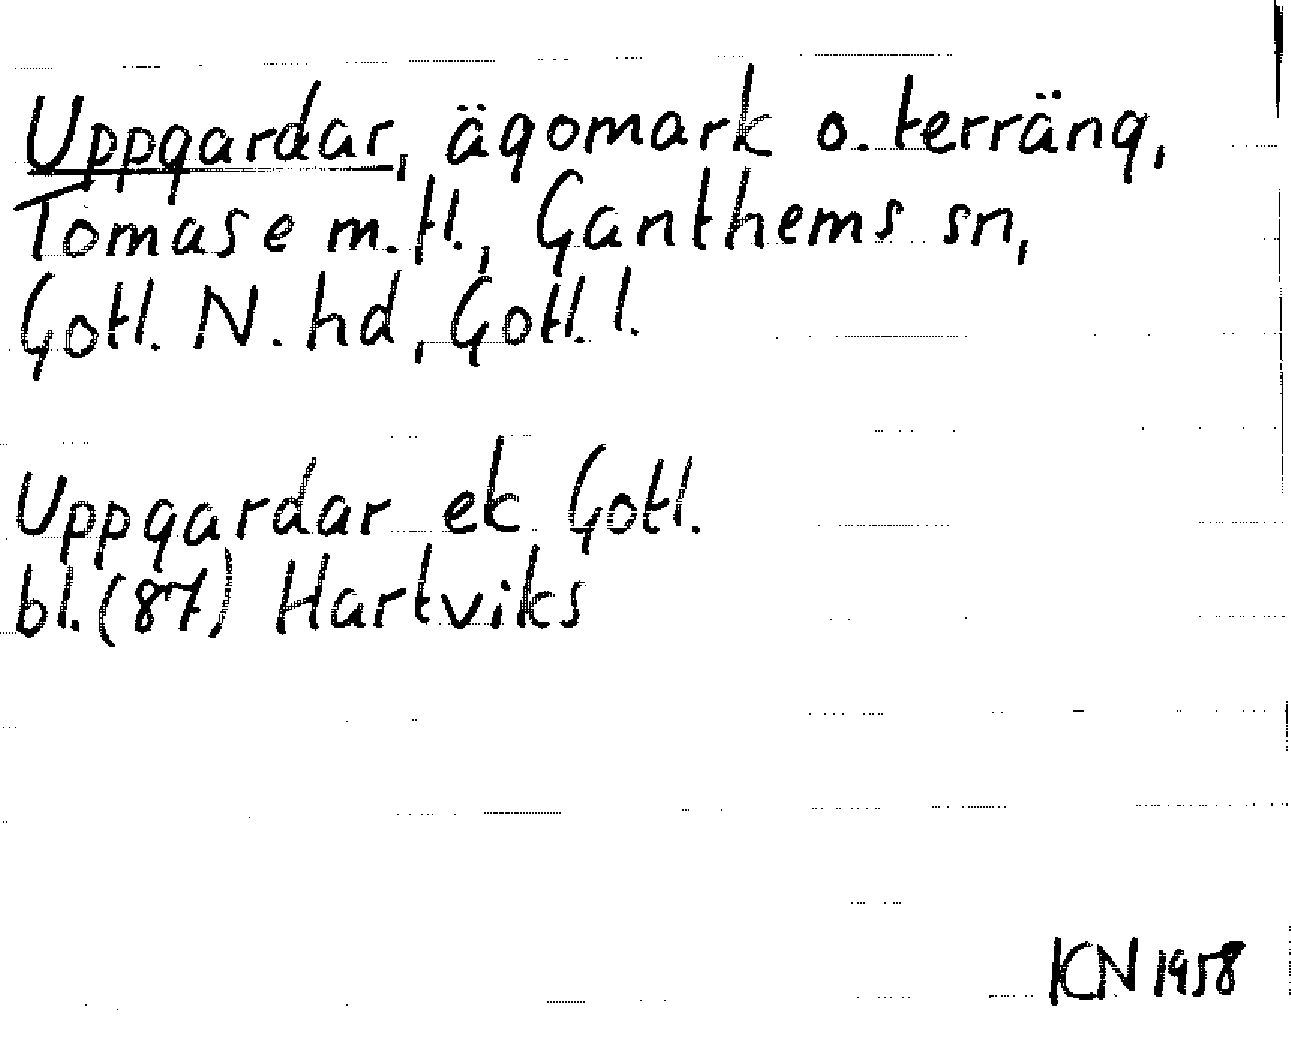 Uppgardar, ägomark o. terräng,
Tomase m.fl., Ganthems sn,
Gotl. N. hd, Gotl. l.
Uppgardar ek Gotl.
bl. (87) Hartviks
KN 1958